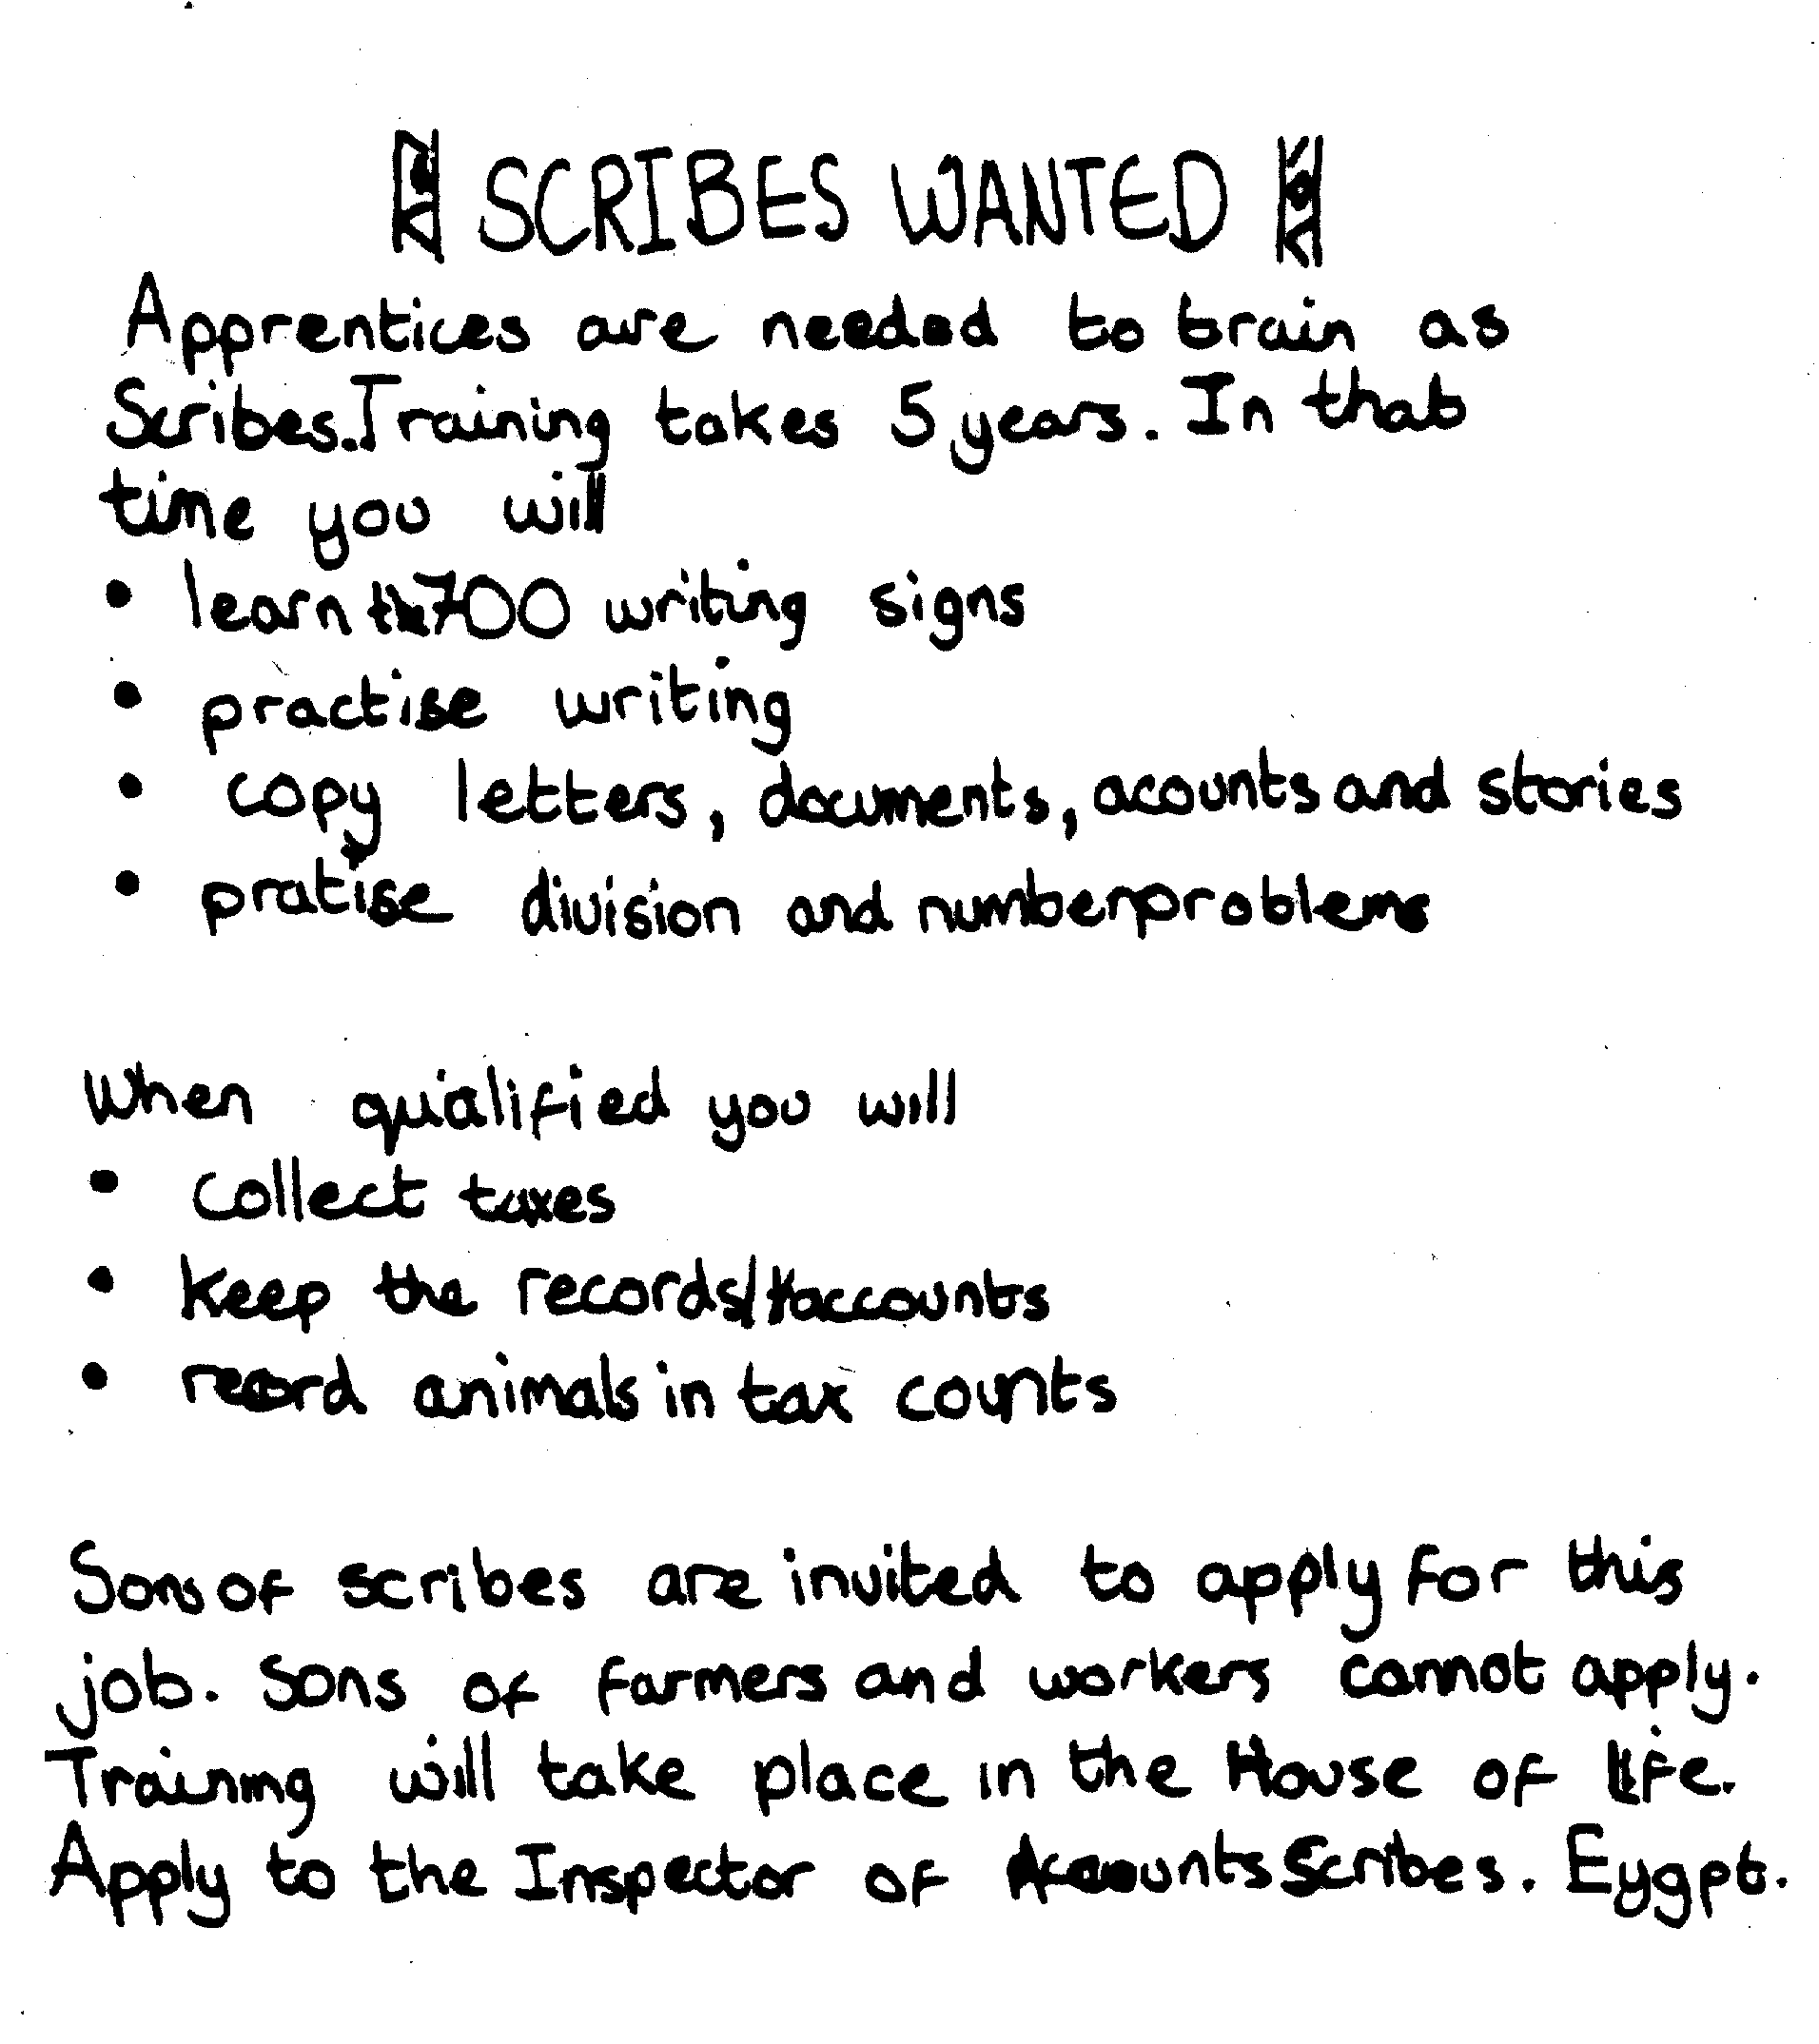 SCRIBES WANTED
Apprentices are needed to train as
Scribes. Training takes 5 years. In that
time you will
• learn the 700 writing signs
• practise writing
• copy letters, documents, acounts and stories
• pratise division and number problems
When qualified you will
• collect taxes
• keep the records/accounts
• record animals in tax counts
Sons of scribes are invited to apply for this
job. Sons of farmers and workers cannot apply.
Training will take place in the House of life.
Apply to the Inspector of Accounts Scribes. Eygpt.